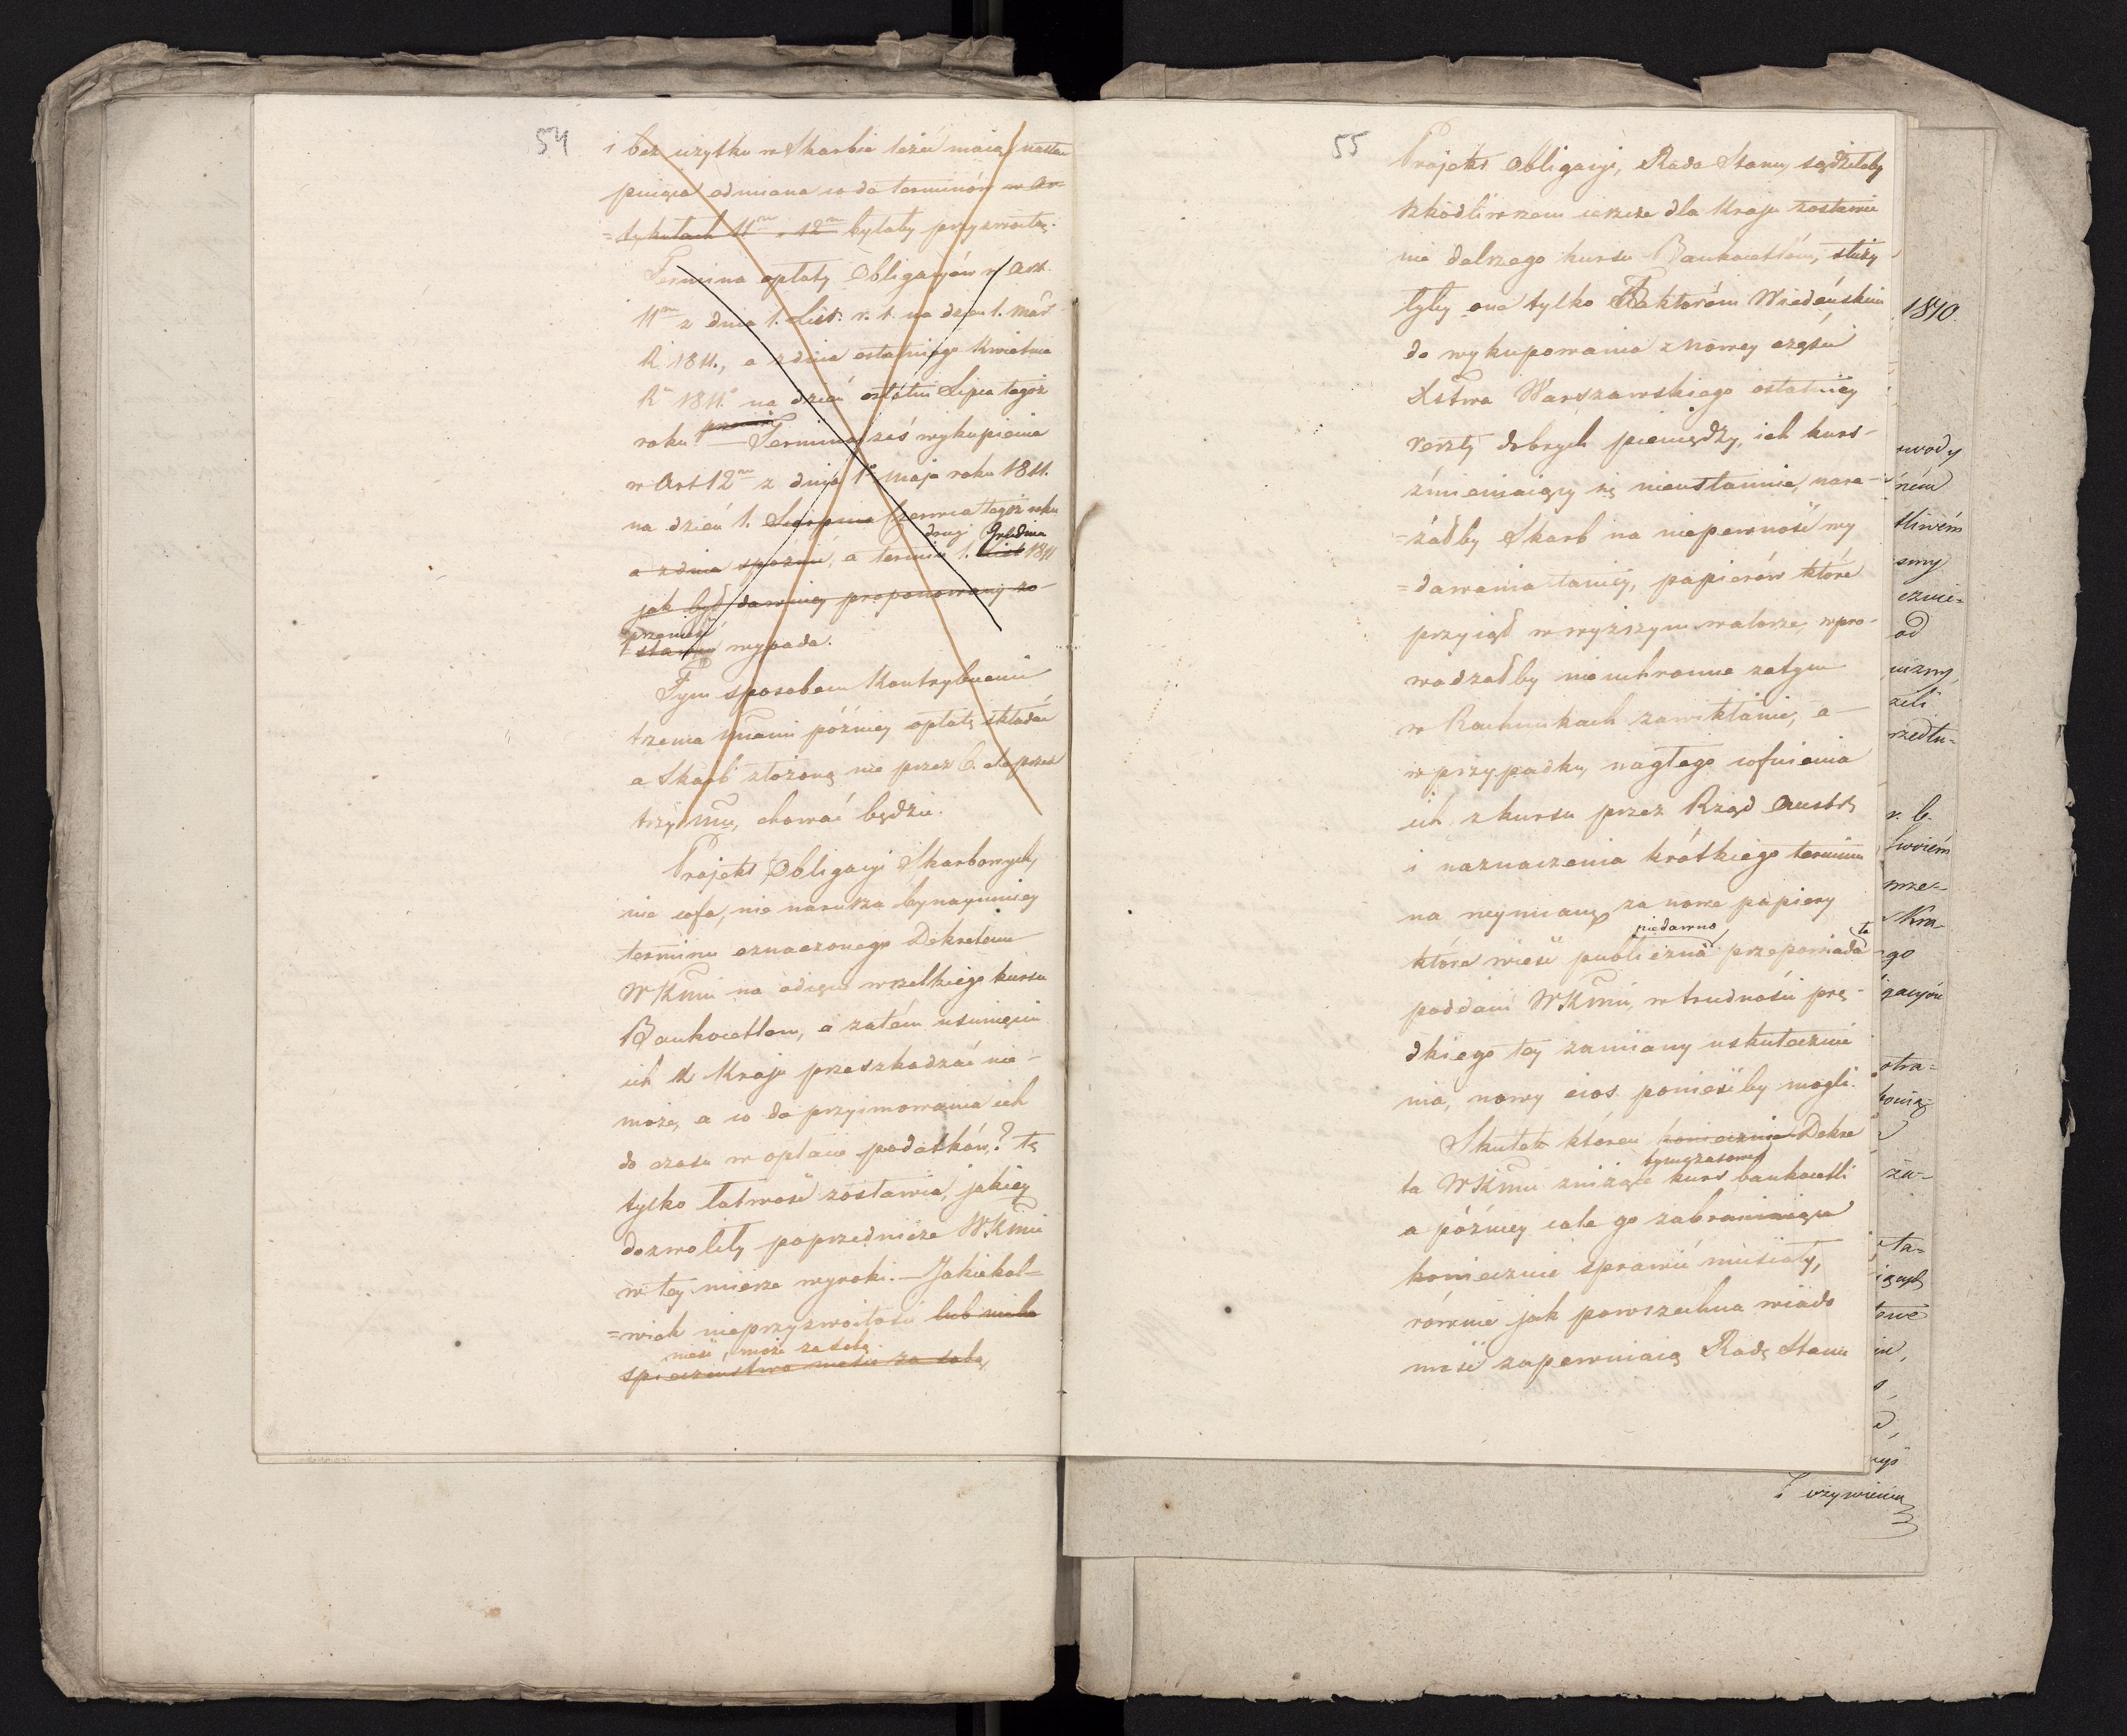 54
i bez użytku w Skarbie leżeć maiąc nastę
puiąca odmiana co do terminów w Ar=
=tykułach 11m i 12m byłaby przyzwoitą.
Termina opłaty Obligacyów w Art.
11m z dnia 1. List: r. t. na dzień 1. Mar
R. 1811., a z dnia ostatniego Kwietnia
R. 1811. na dzień ostatni Lipca tegoż
roku. — Termina zaś wykupienia
w Art 12m z dnia 1o Maja roku 1811.
na dzień 1. Sierpnia Czerwca tegoż roku
drugi Grudnia
a z dnia , a termin 1. List 1811
jak był dawniey proponowany zo
przenieść
stawić wypada.
Tym sposobem Kontrybuenci
trzema później opłatę składać
a Skarb złożoną nie przez 6. ale przez
trzy , chować będzie.
Projekt Obligacyi Skarbowych,
nie cofa, nie narusza bynaymniey
terminu oznaczonego Dekretem
WKMci na odięcie wszelkiego kursu
Bankocetlom, a zatém usunięciu
ich z Kraju przeszkadzać nie
może, a co do przyimowania ich
do czasu w opłacie podatków? tę
tylko łatwość zostawia, jakiey
dozwoliły poprzednicze WKMci
w tey mierze wyroki. — Jakiekol=
=wiek nieprzyzwoitości lub niebe
nieść, może za sobą.
spieczeństwa nieść za sobą,
55
Projekt Obligacyi, Rada Stanu sądziłaby
szkodliwszem ieszcze dla Kraju zostawie
nie dalszego kursu Bankocetlów, służy
łyby one tylko Faktoróm Wiedeńskim
do wykupowania z Nowey części
Xstwa Warszawskiego ostatniey
reszty dobrych pieniędzy, ich kurs
zmieniaiący się nieustannie, nara=
=żałby Skarb na niepewność wy
=dawania taniey, papierów które
przyiął w wyższym walorze, wpro=
wadzałby nieuchronne zatym
w Rachunkach zawikłanie, a
w przypadku nagłego cofnienia
ich z kursu przez Rząd Austr:
i naznaczenia krótkiego terminu
na wymianę za nowe papiery
niedawno
które wieść publiczna przepowiada
ta
poddani WKMci, w trudności prę=
dkiego tey zamiany uskutecznie
nia, nowy cios ponieść by mogli.
Skutek któren koniecznie Dekre
tymczasowy
ta WKMci zniżaiące kurs bankocetli
a później cale go zabraniaiące
koniecznie sprawić musiały,
równie jak powszechna wiado
mość zapewniaią Radę Stanu
1810.
wody
tliwém
ezwie=
od
żeli
rzedłu=
r. b.
go
gacyów
otra=
ta=
żywienia